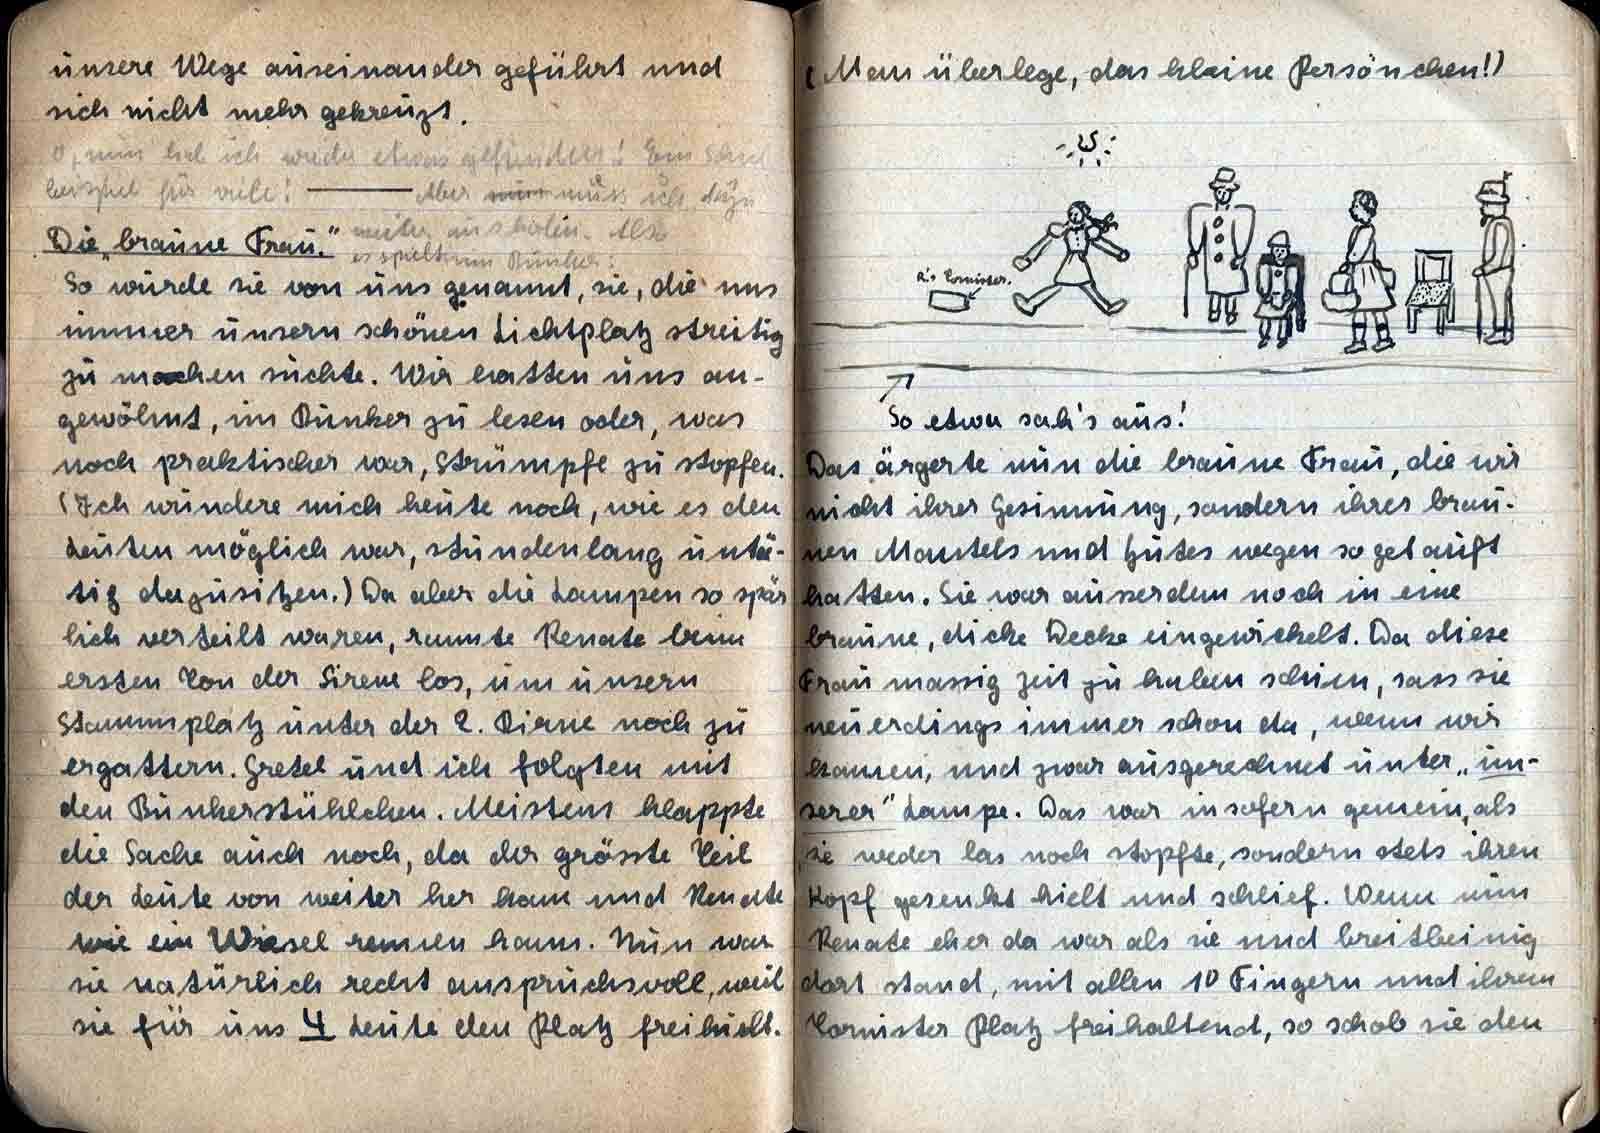 unsere Wege auseinander geführt und
sich nicht mehr gekreuzt.
O, nun hab ich wieder etwas gefunden! Ein
beispiel für viele! ——— Aber nun muss ich
weiter ausholen. Also
es spielt im Bunker:
Die „braune Frau."
So wurde sie von uns genannt, sie, die uns
immer unsern schönen Lichtplatz streitig
zu machen suchte. Wir hatten uns an-
gewöhnt, im Bunker zu lesen oder, was
noch praktischer war, Strümpfe zu stopfen.
(Ich wundere mich heute noch, wie es den
Leuten möglich war, stundenlang untä-
tig dazusitzen.) Da aber die Lampen so spär
lich verteilt waren, rannte Renate beim
ersten Ton der Sirene los, um unsern
Stammplatz unter der 2. Birne noch zu
ergattern. Gretel und ich folgten mit
den Bunkerstühlchen. Meistens klappte
die Sache auch noch, da der grösste Teil
der Leute von weiter her kam und Renate
wie ein Wiesel rennen kann. Nun war
sie natürlich recht anspruchsvoll, weil
sie für uns 4 Leute den Platz freihielt.
(Man überlege, das kleine Persönchen!)
R's Tornister.
So etwa sah's aus!
Das ärgerte nun die braune Frau, die wir
nicht ihrer Gesinnung, sondern ihres brau-
nen Mantels und Hutes wegen so getauft
hatten. Sie war ausserdem noch in eine
braune, dicke Decke eingewickelt. Da diese
Frau massig Zeit zu haben schien, sass sie
neuerdings immer schon da, wenn wir
kamen, und zwar ausgerechnet unter „un-
serer" Lampe. Das war insofern gemein, als
sie weder las noch stopfte, sondern stets ihren
Kopf gesenkt hielt und schlief. Wenn nun
Renate eher da war als sie und breitbeinig
dort stand, mit allen 10 Fingern und ihrem
Tornister Platz freihaltend, so schob sie den